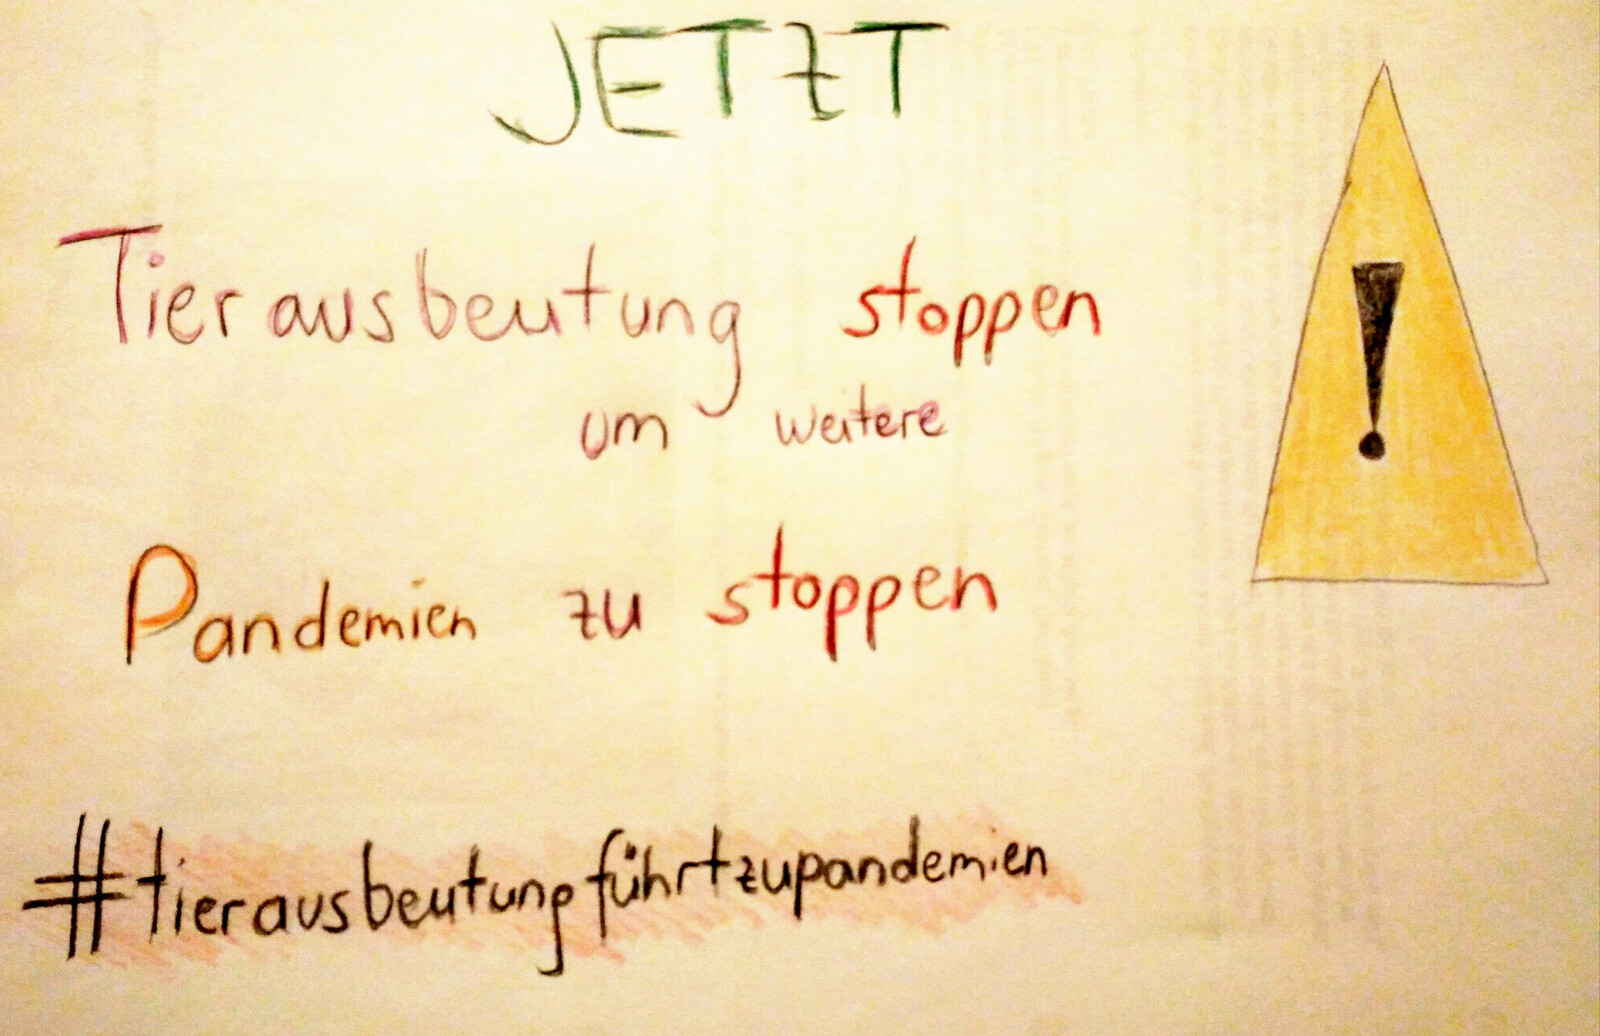 JETZT
Tierausbeutung stoppen
um weitere
Pandemien zu stoppen
!
#tierausbeutungführtzupandemien